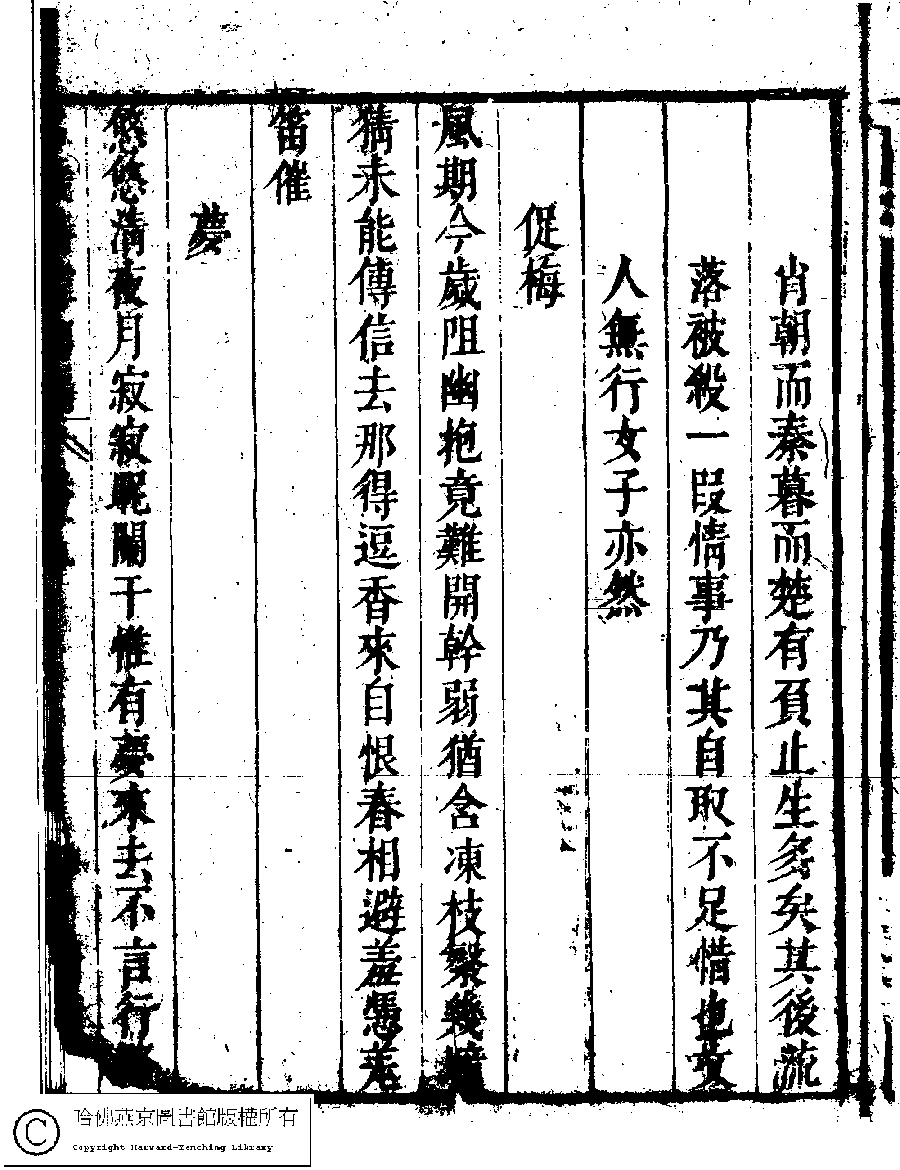 肯朝而秦暮而楚有頁止生多矣其後流
落被殺一段情事乃其自取不足惜也文
人無行女子亦然
促梅
風期今歲阻幽抱竟難開幹弱猶含凍枝繁幾
猜未能傳信去那得逗香來自恨春相避羞憑老
笛催
夢
悠悠清夜月寂寂眤闌干惟有夢來去不言行
哈佛燕京圖書館版權所有
Copyright Harvard-Yenching Library